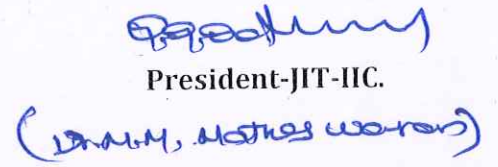 President-JIT-IIC.
(Dr.M.M, Matheswaran)